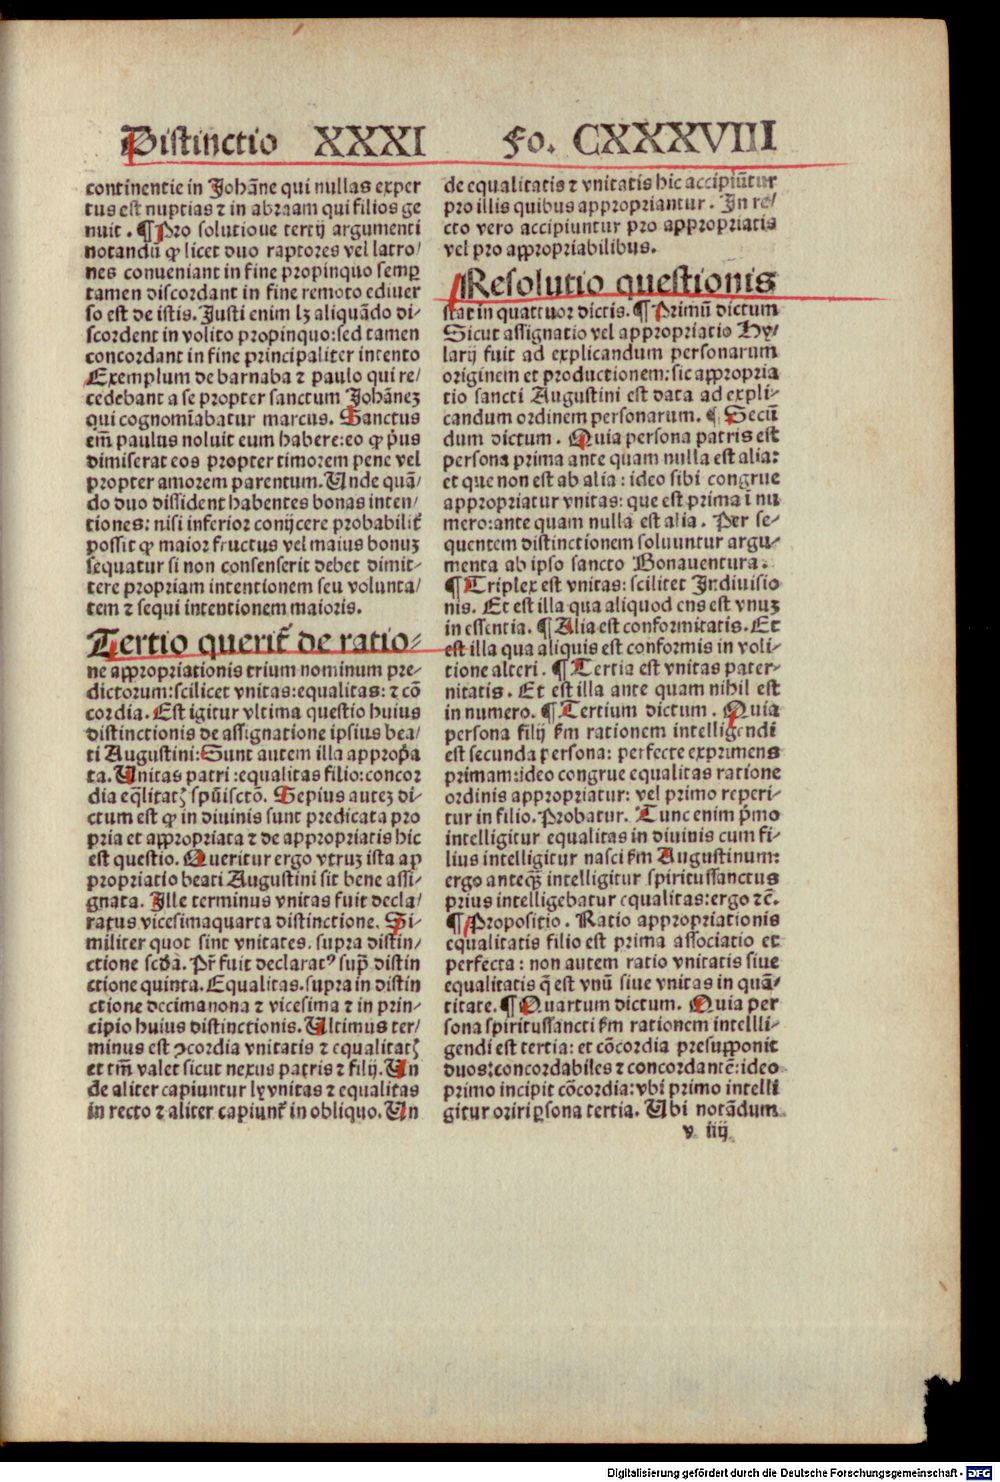 Distinctio XXXI Fo. CXXXVIII
continentie in Johãne qui nullas exper
tus est nuptias ⁊ in abraam qui filios ge
nuit. ¶ Pro solutioue tertij argumenti
notandũ ꝙ licet duo raptores vel latro/
nes conueniant in fine propinquo semꝑ
tamen discordant in fine remoto ediuer
so est de istis. Justi enim lꝫ aliquãdo di-
scordent in volito propinquo: sed tamen
concordant in fine principaliter intento
Exemplum de barnaba ⁊ paulo qui re/
cedebant a se propter sanctum Johãneꝫ
qui cognomĩabatur marcus. Sanctus
em̃ paulus noluit eum habere: eo ꝙ p̃us
dimiserat eos propter timorem pene vel
propter amorem parentum. Unde quã/
do duo dissident habentes bonas inten/
tiones: nisi inferior conijcere probabilit̃
possit ꝙ maior fructus vel maius bonuꝫ
sequatur si non consenserit debet dimit-
tere propriam intentionem seu volunta/
tem ⁊ sequi intentionem maioris.
Tertio querit̃ de ratio-
ne appropriationis trium nominum pre-
dictorum: scilicet vnitas: equalitas: ⁊ cõ
cordia. Est igitur vltima questio huius
distinctionis de assignatione ipsius bea/
ti Augustini: Sunt autem illa approp̃a
ta. Unitas patri: equalitas filio: concor
dia eq̃litatꝭ spũisctõ. Sepius autez di-
ctum est ꝙ in diuinis sunt predicata pro
pria et appropriata ⁊ de appropriatis hic
est questio. Queritur ergo vtruꝫ ista ap
propriatio beati Augustini sit bene assi-
gnata. Ille terminus vnitas fuit decla/
ratus vicesimaquarta distinctione. Si-
militer quot sint vnitates. supra distin/
ctione scd̃a. Pr̃ fuit declaratꝰ sup̃ distin
ctione quinta. Equalitas. supra in distin
ctione decimanona ⁊ vicesima ⁊ in prin-
cipio huius distinctionis. Ultimus ter/
minus est ꝯcordia vnitatis ⁊ equalitatꝭ
et tm̃ valet sicut nexus patris ⁊ filij. Un
de aliter capiuntur ly vnitas ⁊ equalitas
in recto ⁊ aliter capiunt̃ in obliquo. Un
de equalitatis ⁊ vnitatis hic accipiũtur
pro illis quibus appropriantur. In re/
cto vero accipiuntur pro appropriatis
vel pro appropriabilibus.
Resolutio questionis
stat in quattuor dictis. ¶ Primũ dictum
Sicut assignatio vel appropriatio Hy/
larij fuit ad explicandum personarum
originem et productionem: sic appropria
tio sancti Augustini est data ad expli-
candum ordinem personarum. ¶ Secũ
dum dictum. Quia persona patris est
persona prima ante quam nulla est alia:
et que non est ab alia: ideo sibi congrue
appropriatur vnitas: que est prima ĩ nu
mero: ante quam nulla est alia. Per se-
quentem distinctionem soluuntur argu-
menta ab ipso sancto Bonauentura.
¶ Triplex est vnitas: scilitet Indiuisio
nis. Et est illa qua aliquod ens est vnuꝫ
in essentia. ¶ Alia est conformitatis. Et
est illa qua aliquis est conformis in voli-
tione alteri. ¶ Tertia est vnitas pater-
nitatis. Et est illa ante quam nihil est
in numero. ¶ Tertium dictum. Quia
persona filij f̃m rationem intelligendi
est secunda persona: perfecte exprimens
primam: ideo congrue equalitas ratione
ordinis appropriatur: vel primo reperi-
tur in filio. Probatur. Tunc enim p̃mo
intelligitur equalitas in diuinis cum fi-
lius intelligitur nasci f̃m Augustinum:
ergo anteq̃ȝ intelligitur spiritussanctus
prius intelligebatur equalitas: ergo ⁊c̃.
¶ Propositio. Ratio appropriationis
equalitatis filio est prima associatio et
perfecta: non autem ratio vnitatis siue
equalitatis q̃ est vnũ siue vnitas in quã-
titate. ¶ Quartum dictum. Quia per
sona spiritussancti f̃m rationem intelli-
gendi est tertia: et cõcordia presupponit
duos: concordabiles ⁊ concordantẽ: ideo
primo incipit cõcordia: vbi primo intelli
gitur oriri ꝑsona tertia. Ubi notãdum
v iiij
Digitalisierung gefördert durch die Deutsche Forschungsgemeinschaft - DFG